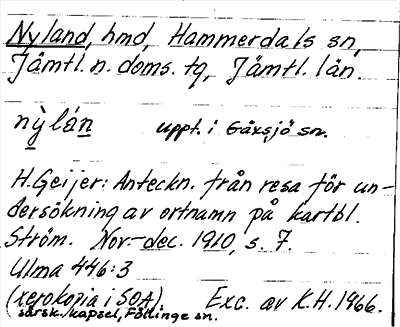 Nyland, hmd, Hammerdals sn,
Jämtl. n. doms. tg, Jämtl. län.
nỳlán uppt. i Gåxsjö sn.
H. Geijer: Anteckn. från resa för un-
dersökning av ortnamn på kartbl.
Ström. Nov-dec. 1910, s. 7.
Ulma 446:3
(xerokopia i SOA). Exc. av K.H. 1966.
särsk. kapsel, Föllinge sn.